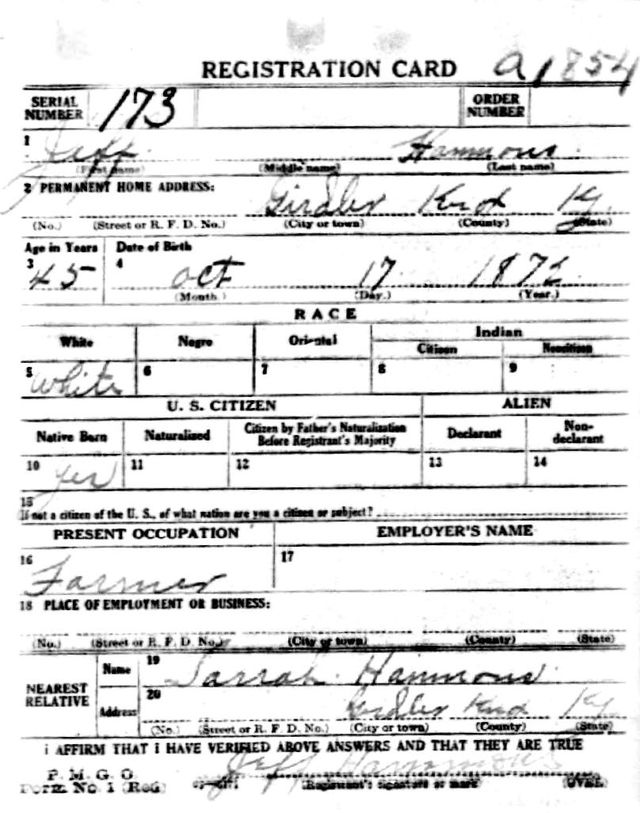 REGISTRATION CARD A1854
SERIAL NUMBER 173 ORDER NUMBER
1 Jeff Hammons
(First name) (Middle name) (Last name)
2 PERMANENT HOME ADDRESS: Girdler Knox Ky
(No.) (Street or R. F. D. No.) (City or town) (County) (State)
Age in Years Date of Birth
3 45 4 Oct 17 1872
(Month.) (Day.) (Year.)
RACE
White Negro Oriental Indian
Citizen Noncitizen
5 White 6 7 8 9
U. S. CITIZEN ALIEN
Native Born Naturalized Citizen by Father's Naturalization Before Registrant's Majority Declarant Non-declarant
10 Yes 11 12 13 14
15
If not a citizen of the U. S., of what nation are you a citizen or subject?
PRESENT OCCUPATION EMPLOYER'S NAME
16 Farmer 17
18 PLACE OF EMPLOYMENT OR BUSINESS:
(No.) (Street or R. F. D. No.) (City or town) (County) (State)
NEAREST RELATIVE Name 19 Sarrah Hammons
Address 20 Girdler Knox Ky
(No.) (Street or R. F. D. No.) (City or town) (County) (State)
I AFFIRM THAT I HAVE VERIFIED ABOVE ANSWERS AND THAT THEY ARE TRUE
P. M. G. O.
Form No. 1 (Red) Jeff Hammons
(Registrant's signature or mark) (OVER)